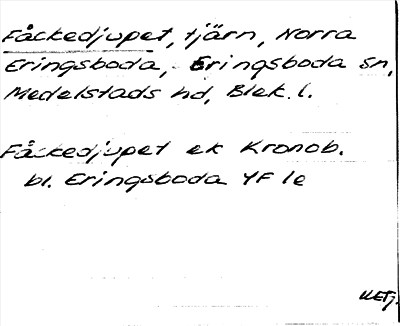 Fåckedjupet, tjärn, Norra
Eringsboda, Eringsboda sn,
Medelstads hd, Blek. l.
Fåckedjupet ek Kronob.
bl. Eringsboda YF 1e